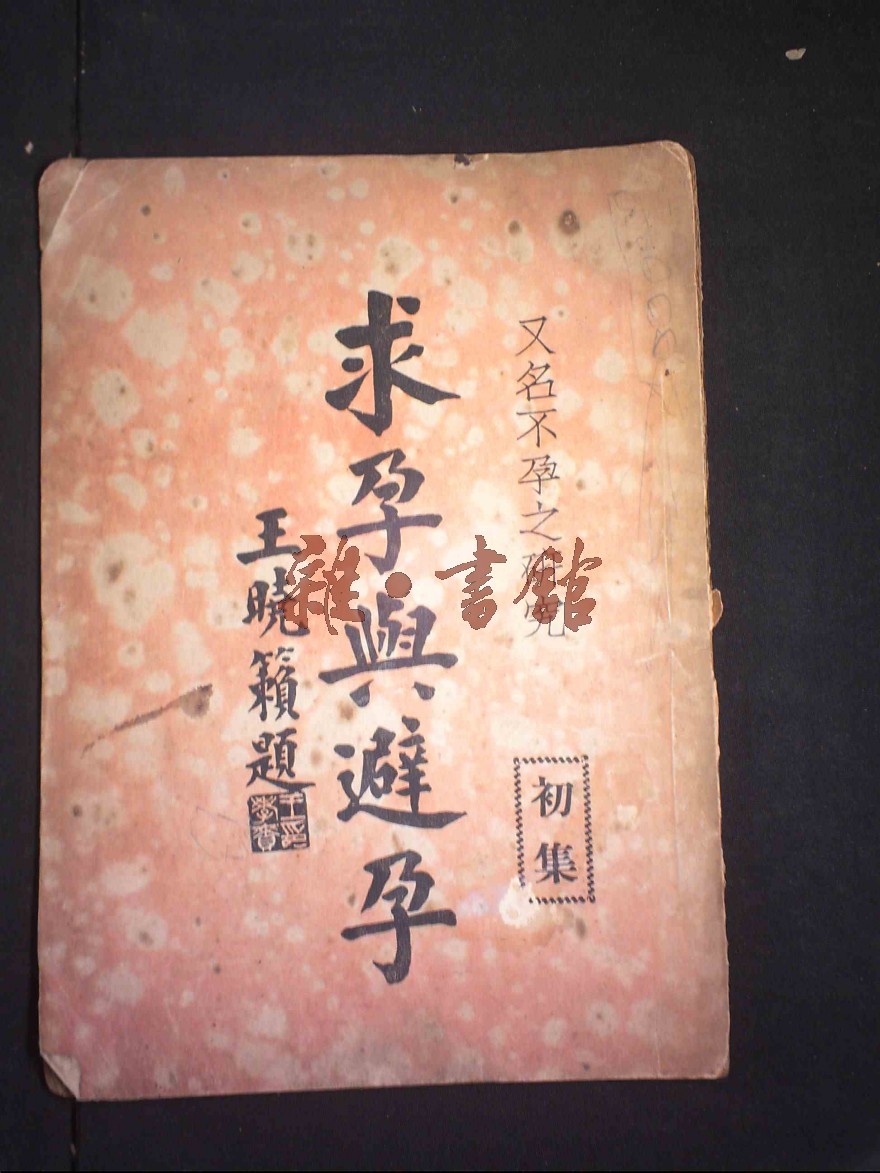 又名不孕之研究
初集
求孕與避孕
王曉籟題
雜·書館